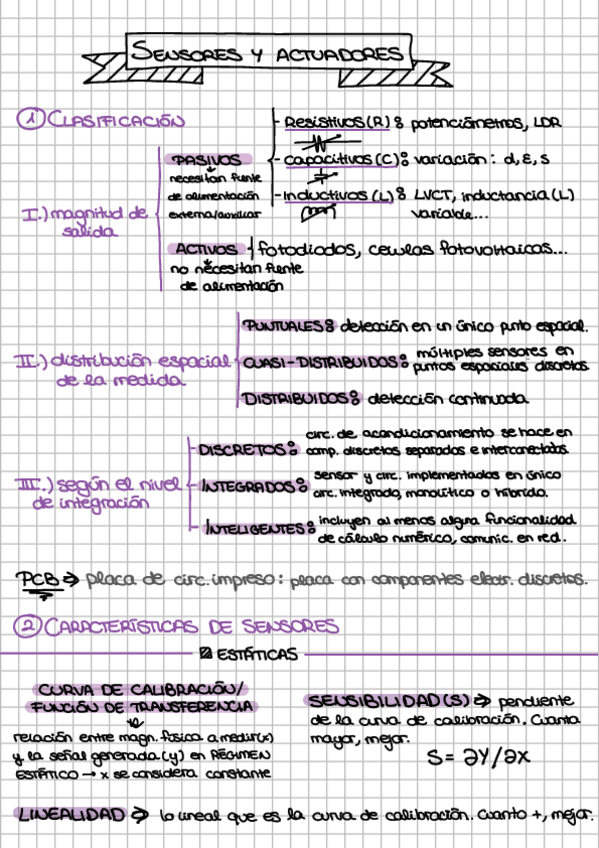 SENSORES Y ACTUADORES
1 CLASIFICACIÓN
I.) magnitud de
salida
PASIVOS
necesitan fuente
de alimentación
externa/auxiliar
Resistivos (R): potenciómetros, LDR
capacitivos (C): variación: d, ε, s
Inductivos (L): LVCT, inductancia (L)
variable...
ACTIVOS fotodiodos, celulas fotovoltaicas...
no necesitan fuente
de alimentación
II.) distribución espacial
de la medida
PUNTUALES: detección en un único punto espacial.
CUASI-DISTRIBUIDOS: múltiples sensores en
puntos espaciales discretos.
DISTRIBUIDOS: detección continuada
III.) según el nivel
de integración
DISCRETOS: circ. de acondicionamiento se hace en
comp. discretos separados e interconectados.
INTEGRADOS: sensor y circ. implementados en único
circ. integrado, monolítico o híbrido.
INTELIGENTES: incluyen al menos alguna funcionalidad
de cálculo numérico, comunic. en red.
PCB → placa de circ. impreso: placa con componentes electr. discretos.
2 CARACTERÍSTICAS DE SENSORES
ESTÁTICAS
CURVA DE CALIBRACIÓN/
FUNCIÓN DE TRANSFERENCIA
relación entre magn. física a medir (x)
y la señal generada (y) en RÉGIMEN
ESTÁTICO → x se considera constante
SENSIBILIDAD (S) → pendiente
de la curva de calibración. Cuanta
mayor, mejor.
S = ∂Y/∂X
LINEALIDAD → lo lineal que es la curva de calibración. Cuanto +, mejor.